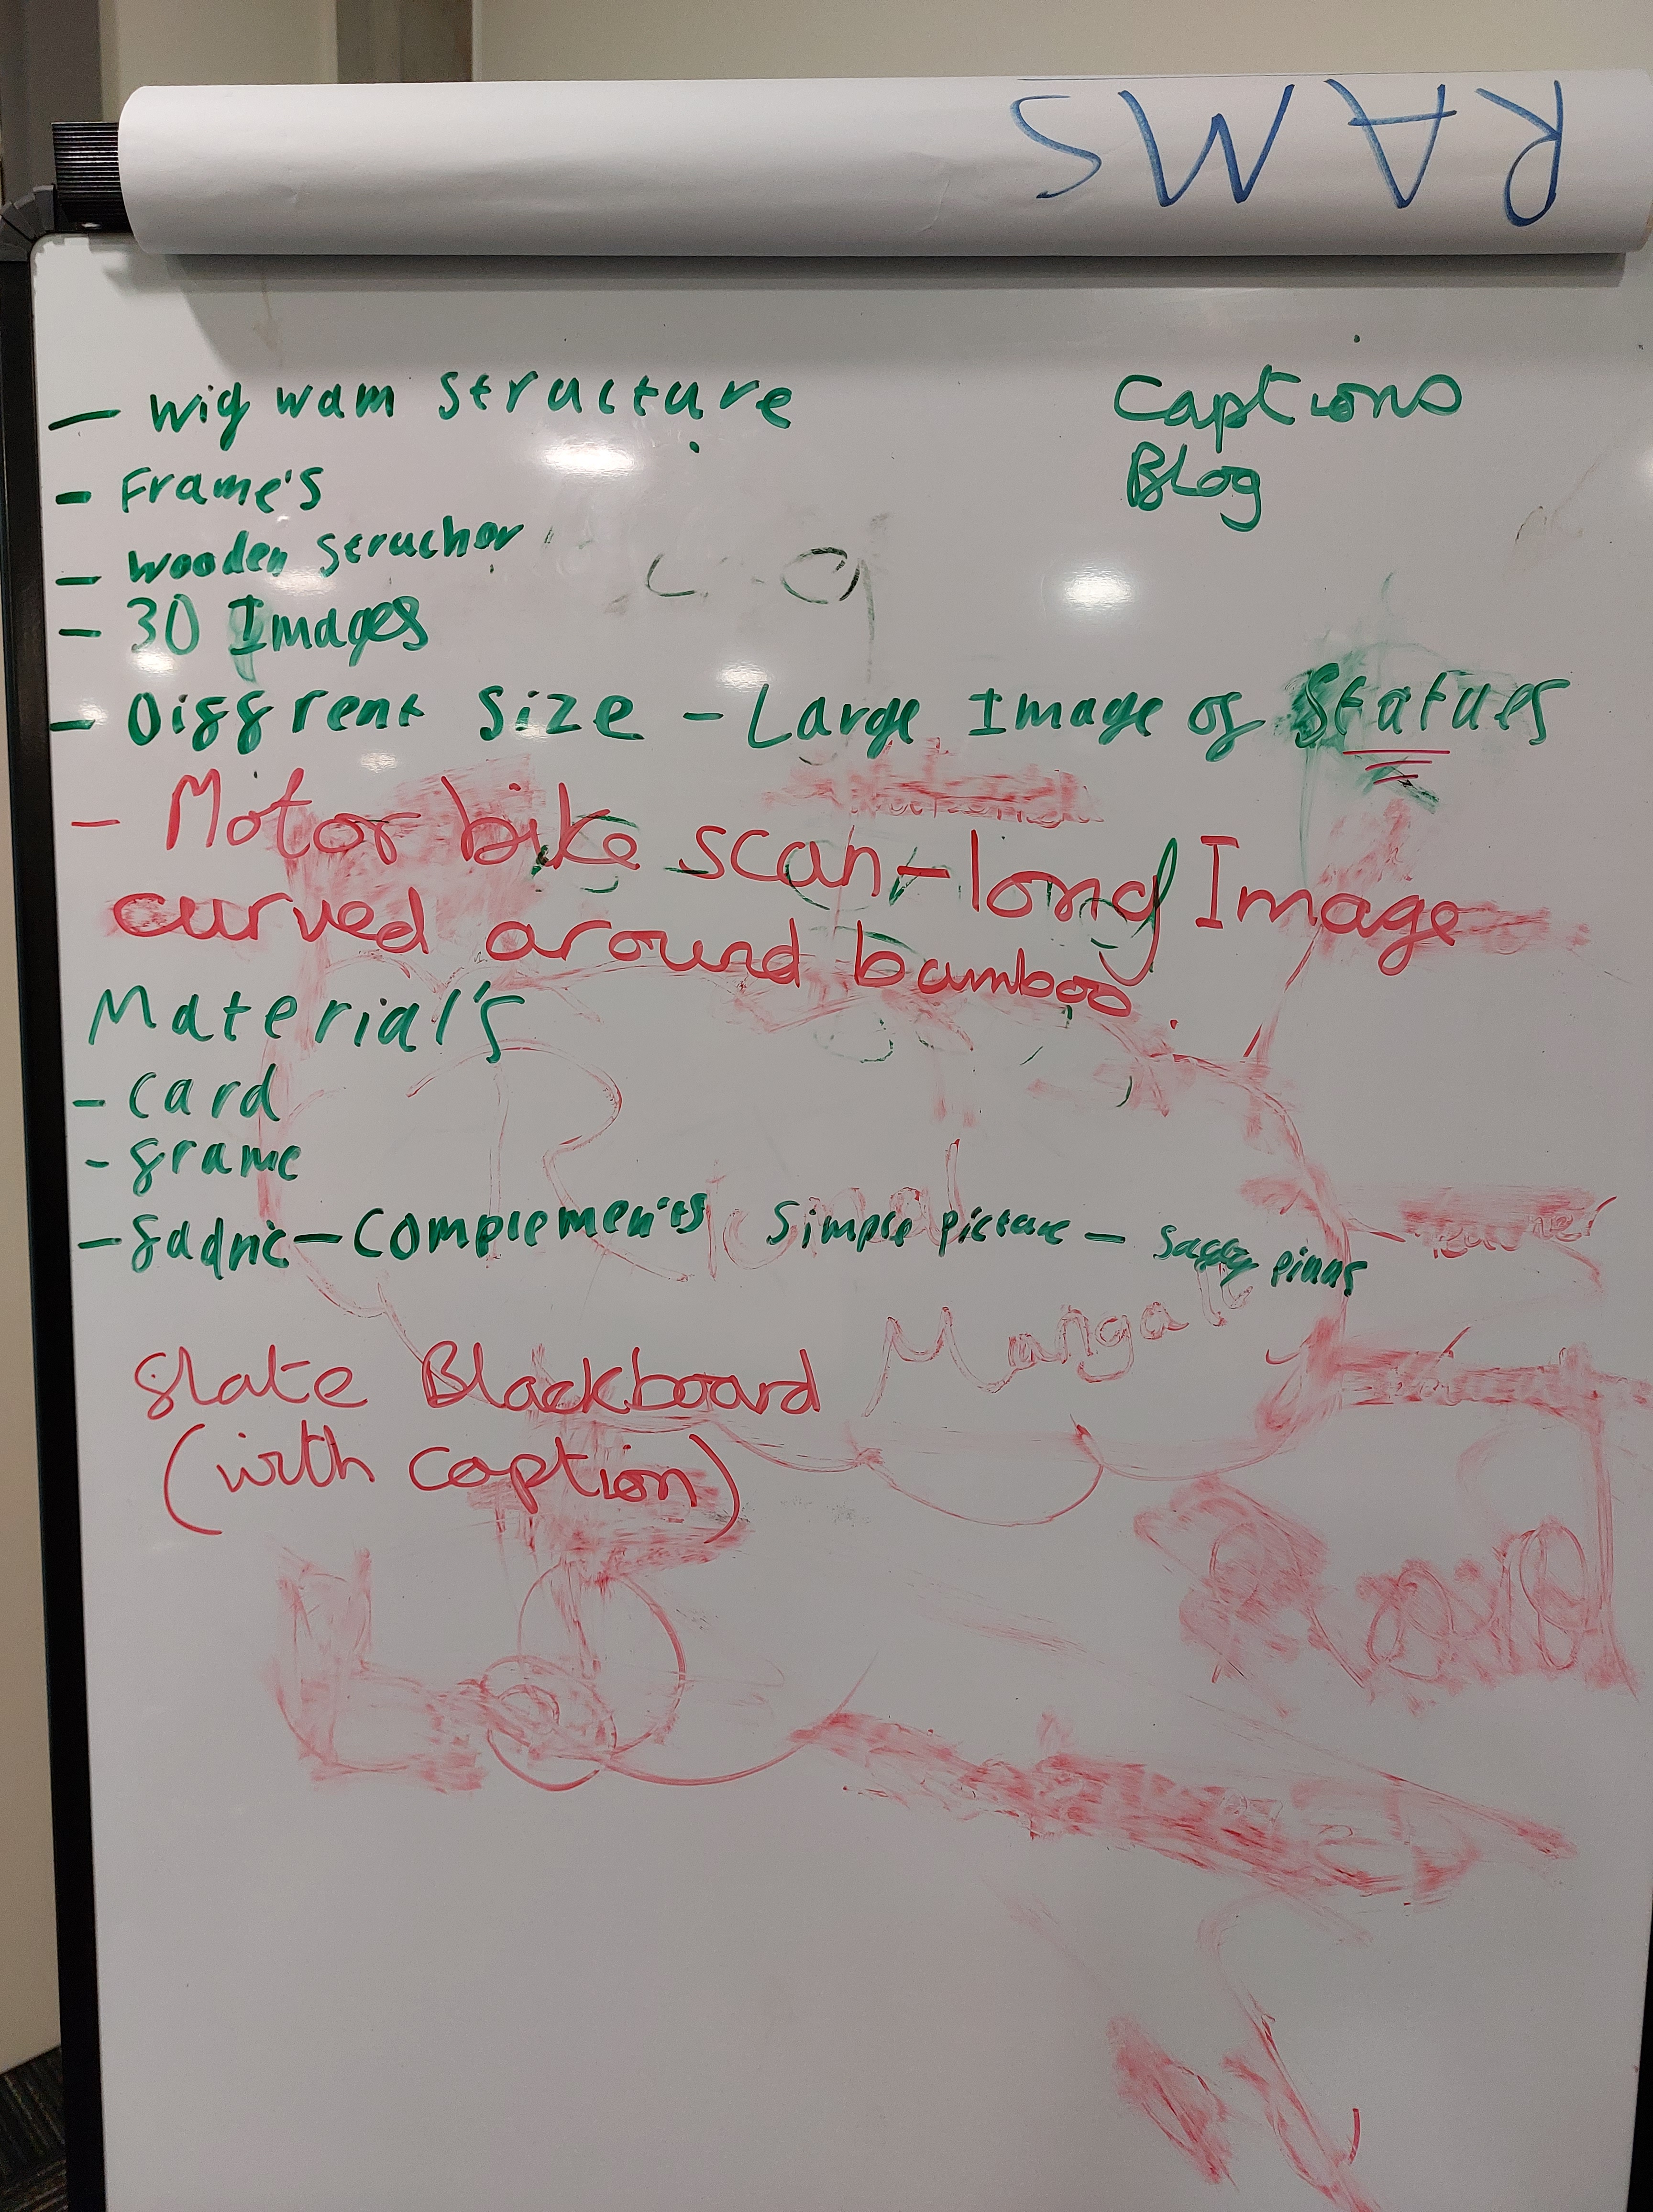 RAMS
- Wigwam Structure
Captions
Blog
- Frame's
- Wooden Struchor
- 30 Images
- Diffrent Size - Large Image of Statues
- Motor bike scan - long Image
curved around bamboo.
Material's
- Card
- frame
- fadric - Complements Simple picture -
Slate Blackboard
(with caption)
Mangal